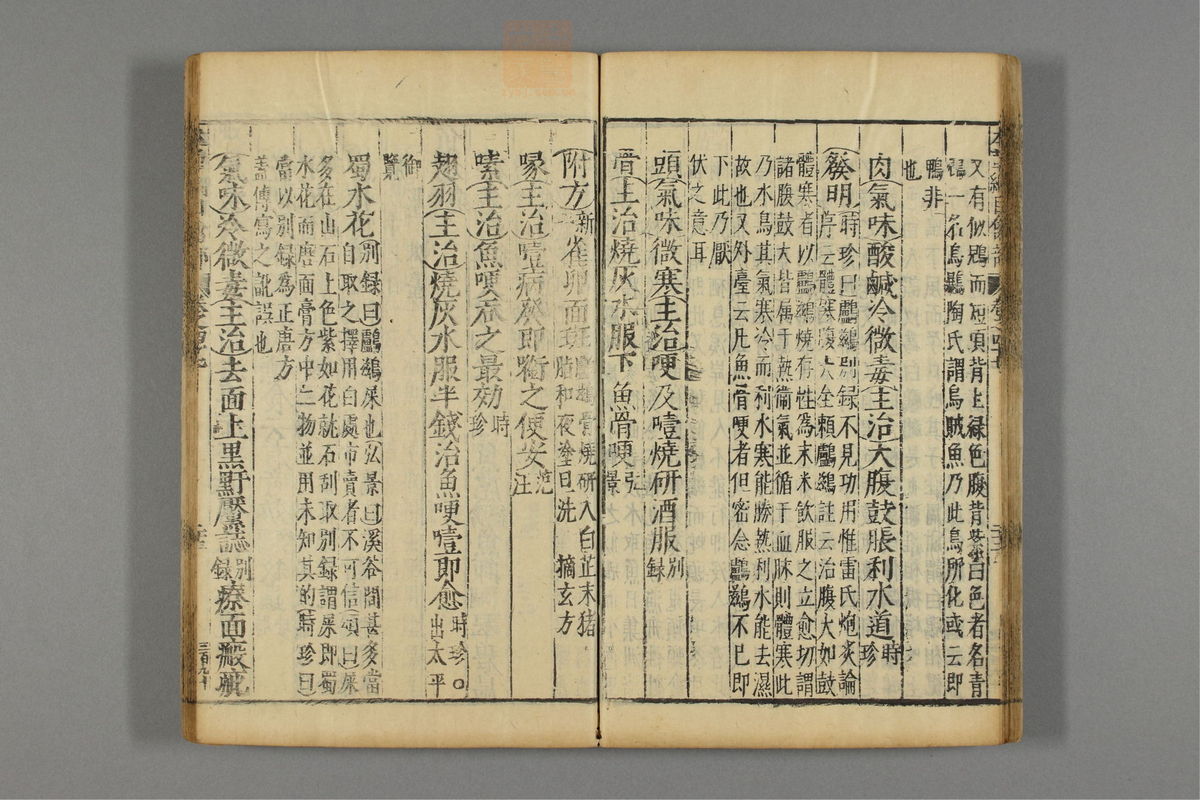 又有似鴢而短頸背上綠色腹背紫白色者名青
䳱一名烏鸔陶氏謂烏賊魚乃此鳥所化或云即
鴨非
也
肉氣味酸鹹冷微毒主治大腹鼓脹利水道時珍
發明時珍曰鸕鷀別録不見功用惟雷氏炮炙論
序云體寒腹大全賴鸕鷀註云治腹大如鼓
體寒者以鸕鷀燒存性為末米飲服之立愈切謂
諸腹鼓大皆屬于熱衞氣並循于血脉則體寒此
乃水鳥其氣寒冷而利水寒能勝熱利水能去濕
故也又外臺云凡魚骨哽者但密念鸕鷀不已即
下此乃厭
伏之意耳
頭氣味微寒主治哽及噎燒研酒服別録
骨主治燒灰水服下魚骨哽弘景
附方新雀卵面斑鸕鷀骨燒研入白芷末猪
脂和夜塗旦洗 摘玄方
喙主治噎病發即銜之便安范汪
嗉主治魚哽吞之最効時珍
翅羽主治燒灰水服半錢治魚哽噎即愈時珍○出太平
御
覽
蜀水花別録曰鸕鷀屎也弘景曰溪谷間甚多當
自取之擇用白處市賣者不可信頌曰屎
多在山石上色紫如花就石刮取別録謂屎即蜀
水花而唐面膏方中二物並用未知其的時珍曰
當以別録為正唐方
蓋傳寫之訛誤也
氣味冷微毒主治去面上黑䵟黶誌別録療面瘢疵